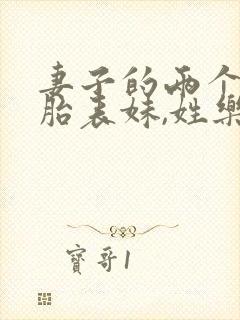 妻子的两个
胎表妹,姓樂
寶哥1